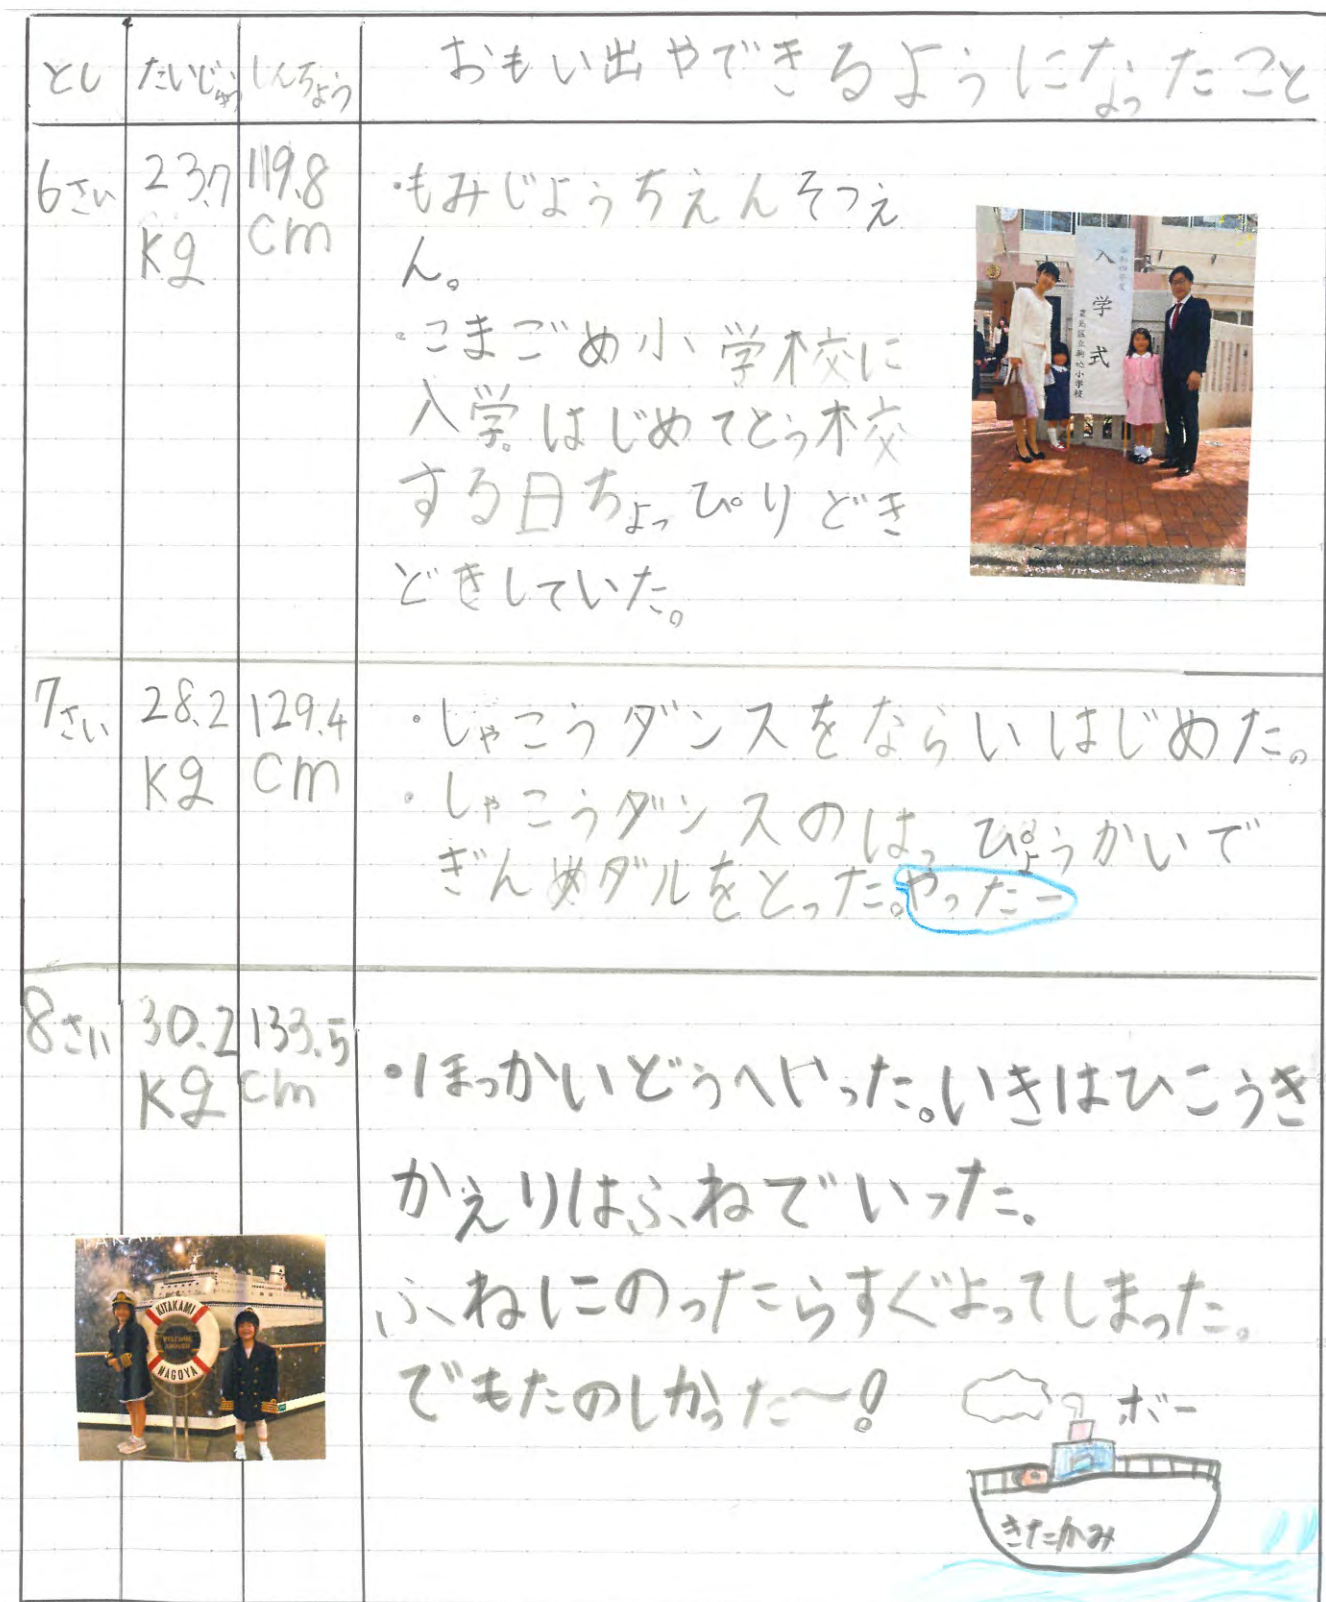 とし たいじゅう しんちょう おもい出やできるようになったこと
6さい 23.7kg 119.8cm
・もみじようちえんそつえ
ん。
・こまごめ小学校に
入学。はじめてとう校
する日ちょっぴりどき
どきしていた。
入学式
豊島区立駒込小学校
7さい 28.2kg 129.4cm
・しゃこうダンスをならいはじめた。
・しゃこうダンスのはっぴょうかいで
ぎんめダルをとった。やったー
8さい 30.2kg 133.5cm
・ほっかいどうへいった。いきはひこうき
かえりはふねでいった。
ふねにのったらすぐよってしまった。
でもたのしかった〜!
KITAKAMI
WELCOME
ABOARD
NAGOYA
ボー
きたかみ